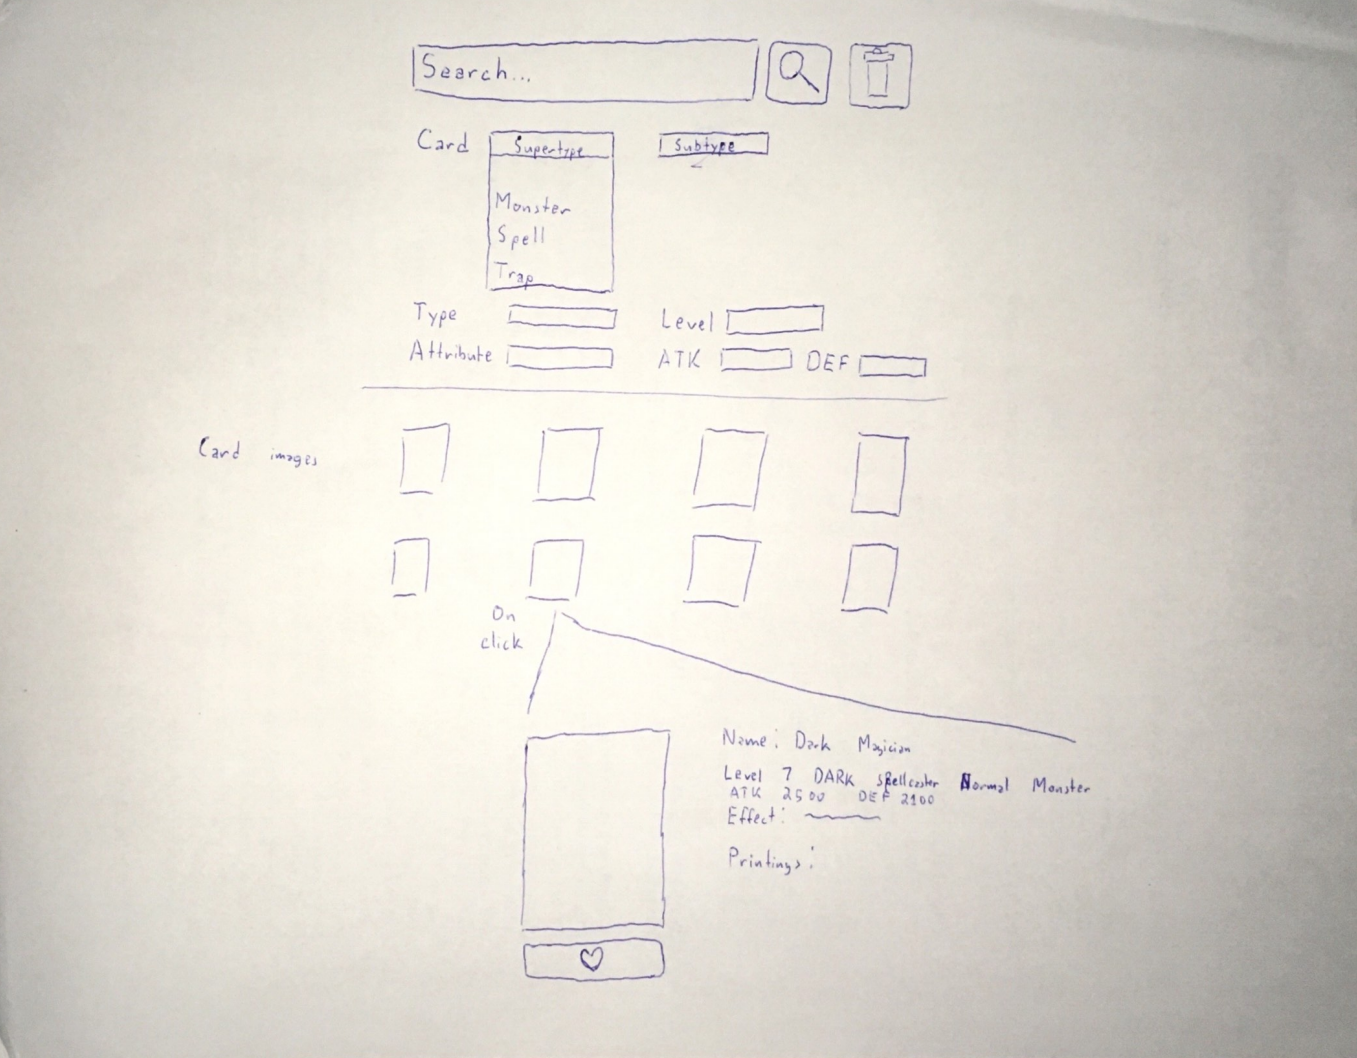 Search...
Card Supertype Subtype
Monster
Spell
Trap
Type Level
Attribute ATK DEF
Card images
On
click
Name: Dark Magician
Level 7 DARK Spellcaster Normal Monster
ATK 2500 DEF 2100
Effect:
Printings: